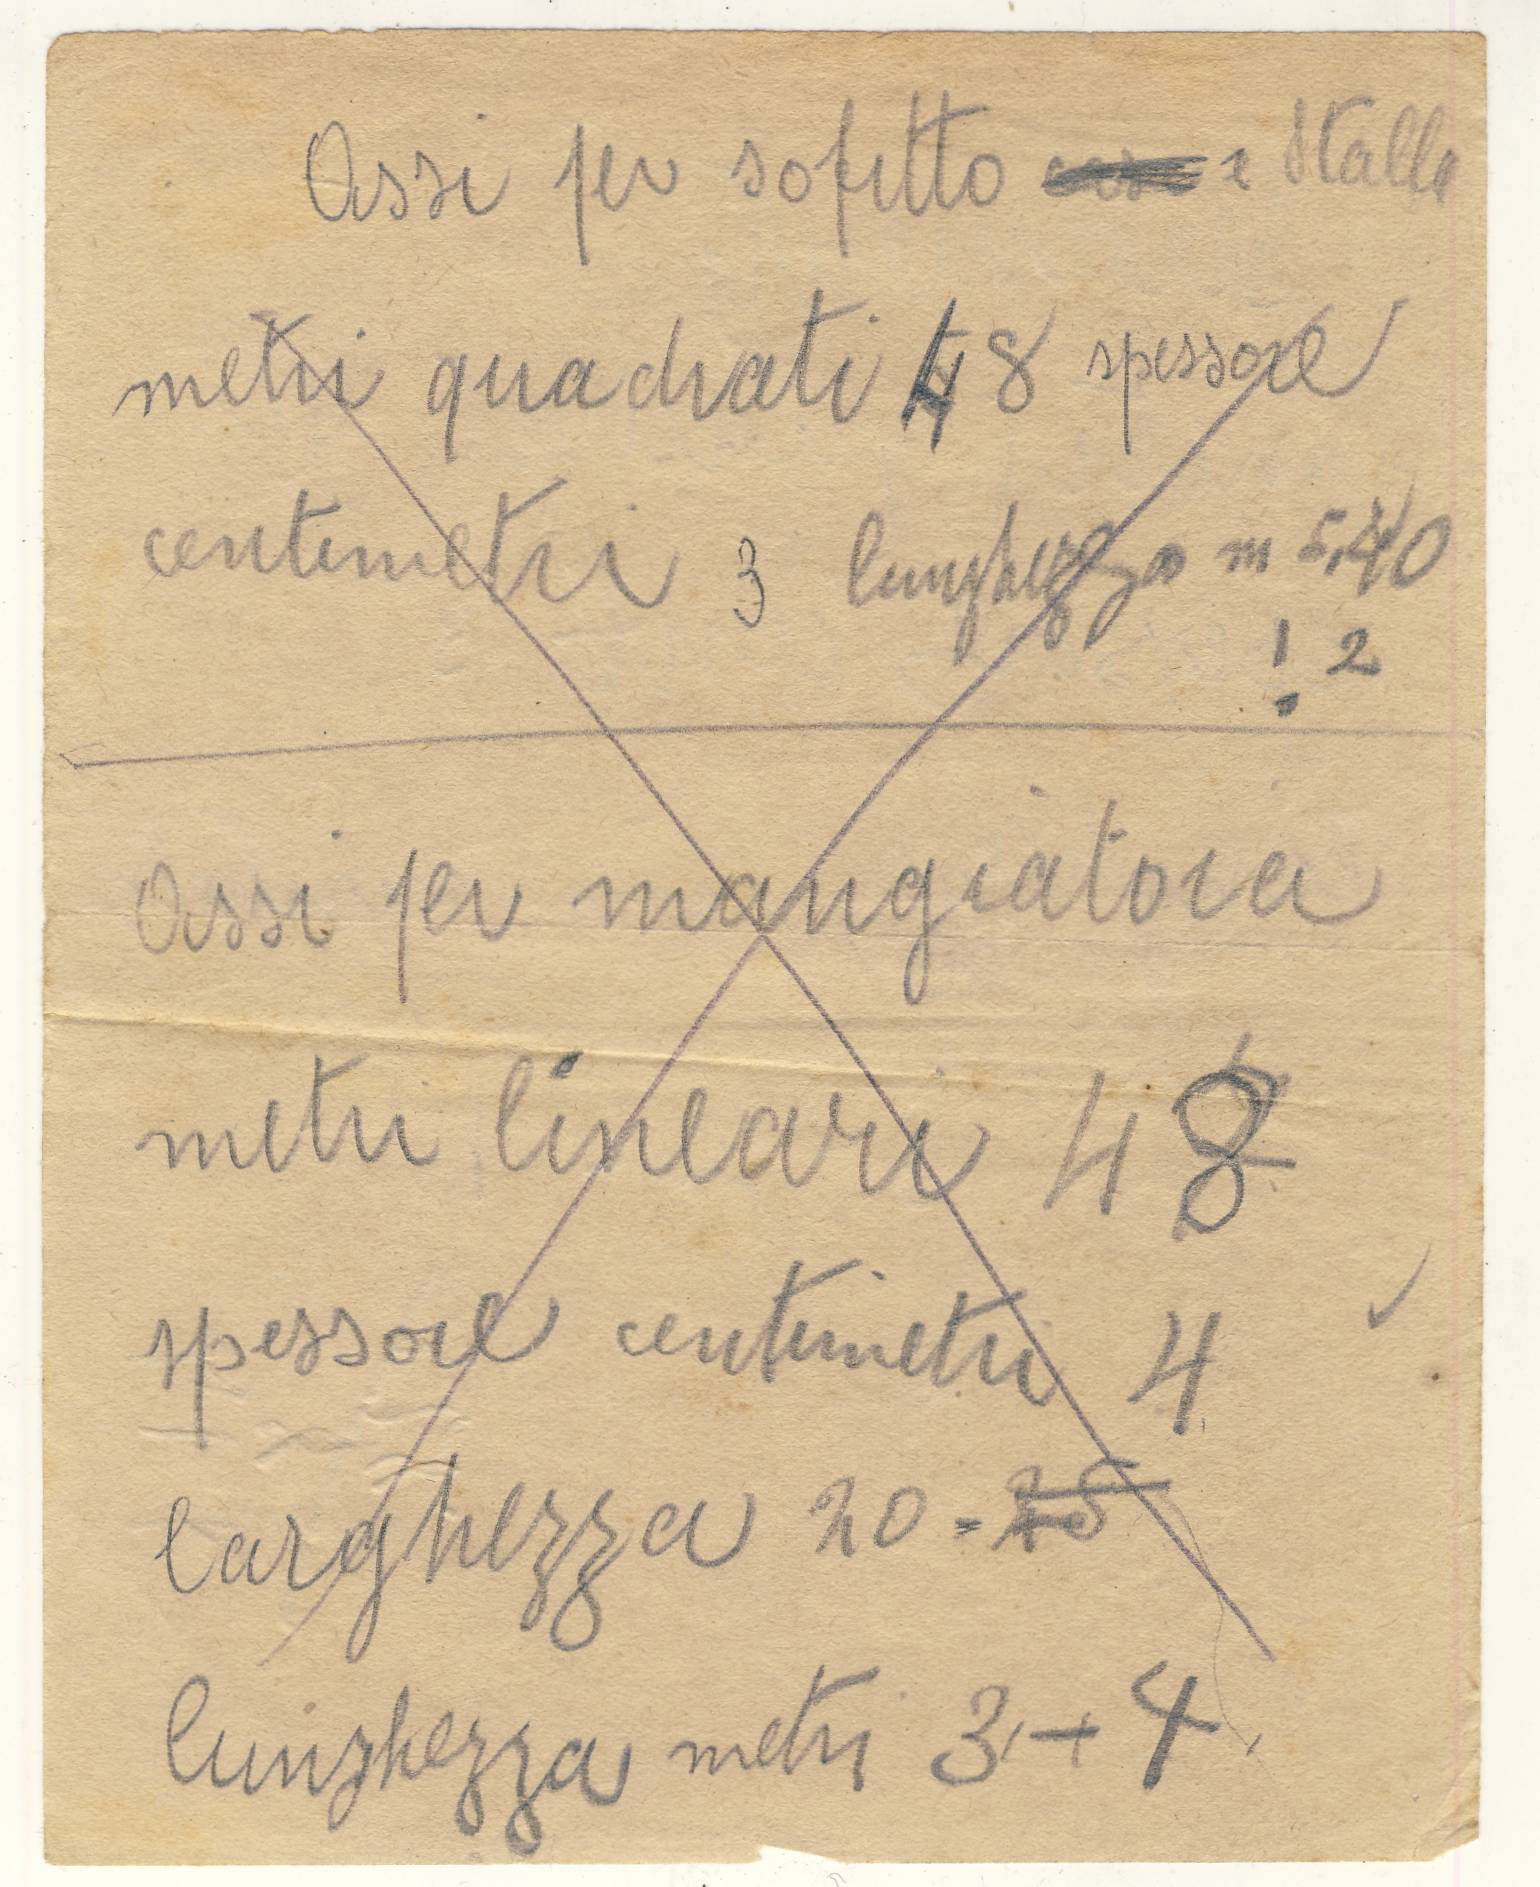 Assi per sofitto e Stalla
metri quadrati 48 spessore
centimetri 3 lunghezza m 5,40
! 2
Assi per mangiatoia
metri lineari 48
spessore centimetri 4
larghezza 20 - 25
lunghezza metri 3 + 4